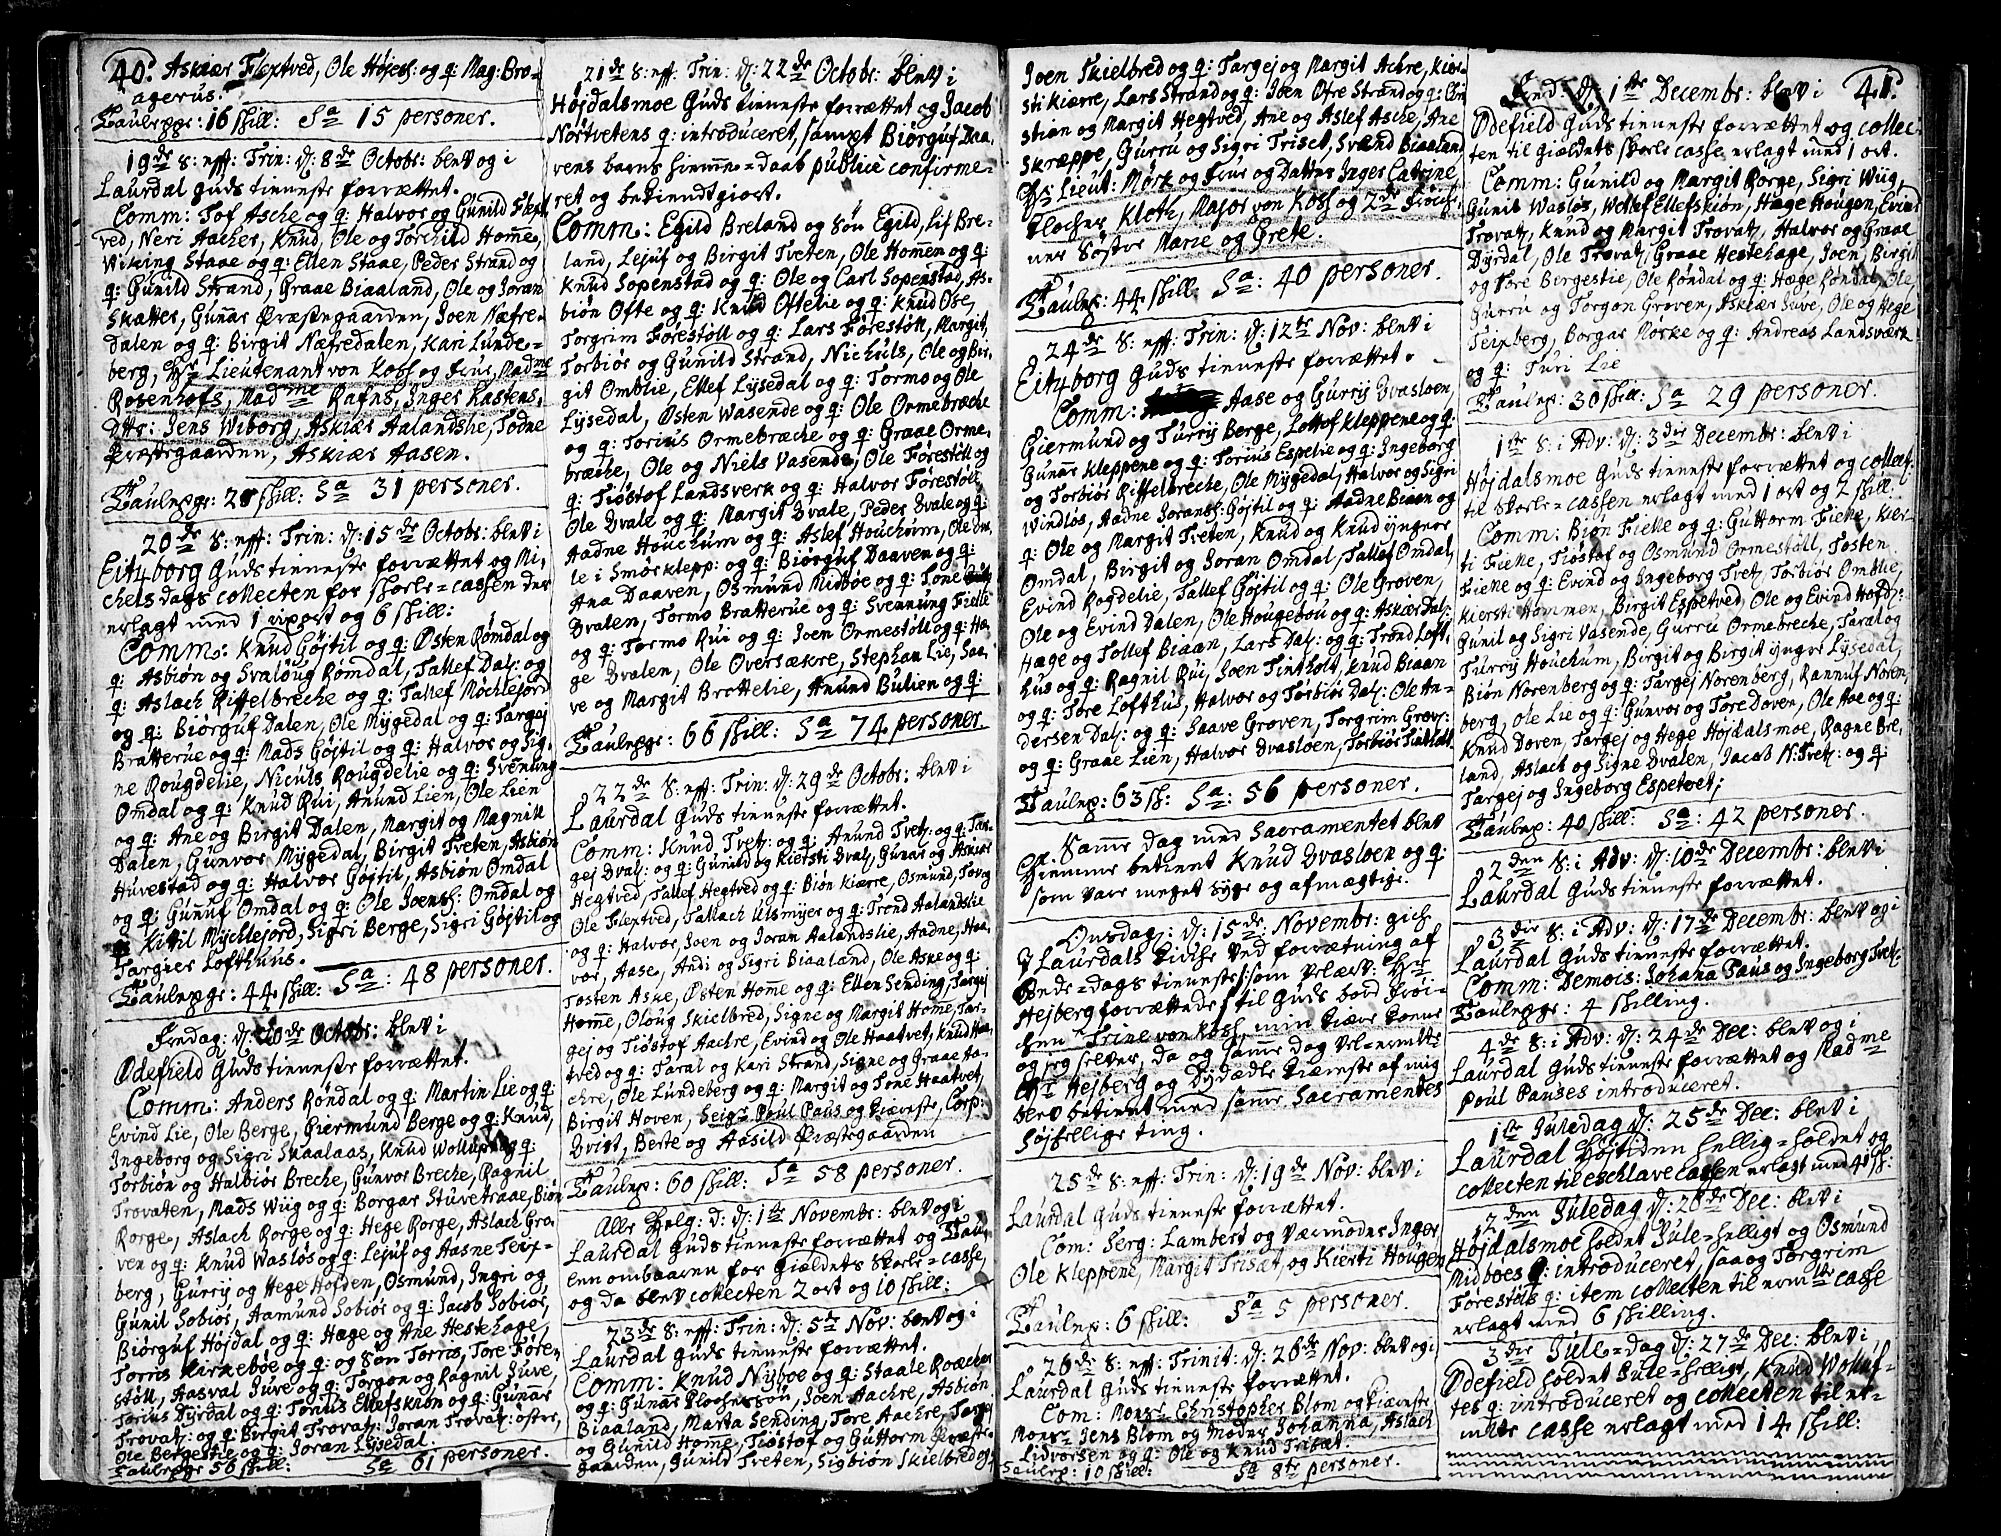 40. Askiær Flextved, Ole Højesf: og q: Mag: Bro-
agerus.
Taulepge: 16 skill: Sa 15 personer.
19de S: eff: Trin: d: 8de Octobr: blev og i
Laurdal Guds tienneste forrættet.
Comm: Tof Asche og q: Halvor og Gunild Flext
ved, Neri Aacher, Knud, Ole og Torchild Homme,
Wiking Staae og q: Ellen Staae, Peder Strand og
q: Gunild Strand, Graae Biaaland, Ole og Joran
Skatter, Gunnar Præstegaarden, Joen Næfre-
dalen og q: Birgit Næfredalen, Kari Lunde-
berg, Hr Lieutenant von Koss og Frue, Madme
Rosenhofs, Madme Rafns, Inger Kastens,
Dttr: Jens Wiborg, Askiær Aalandslie, Todne
Præstegaarden, Askiær Aasen.
Taulepge: 28 skill: Sa 31 personer.
20de S: eff: Trin: d: 15de Octobr: blev i
Eitzborg Guds tienneste forrættet og Mi-
chels dags collecten for skole-cassen der
erlagt med 1 rxort og 6 skill:
Comm: Knud Gøjtil og q: Østen Rømdal og
q: Asbiøn og Svaloug Rømdal, Tallef Dal: og
q: Aslach Riffelbreche og q: Tallef Møchlefjord
og q: Biørguf Dalen, Ole Mygedal og q: Targej
Bratterue og q: Mads Gøjtil og q: Halvor og Sig-
ne Rougdelie, Niculs Rougdelie og q: Svennung
Omdal og q: Knud Rui, Anund Lien, Ole Lien
og q: Ane og Birgit Dalen, Margit og Magnild
Dalen, Gunvor Mygedal, Birgit Tveten, Asbiøn
Huvestad og q: Halvor Gøjtil, Asbiøn Omdal
og q: Gunuf Omdal og q: Ole Joensf: Omdal og
q: Kitil Mychlejord, Sigri Berge, Sigri Gøjtil og
Targier Lofthuus.
Taulepge: 44 skill: Sa: 48 personer.
Fredag: d: 20de Octobr: blev i
Ødefield Guds tienneste forrættet.
Comm: Anders Røndal og q: Martin Lie og q:
Evind Lie, Ole Berge, Giermund Berge og q: Knud,
Ingeborg og Sigri Skaalaas, Knud og q:
Torbiøn og Halbiør Breche, Gunvor Breche, Ragnil
Trovaten, Mads Wiig og q: Borgar Stuvetraae, Biøn
Rorge, Aslach Rorge og q: Hege Rorge, Aslach Gro-
ven og q: Knud Wasløs og q: Lejuf og Aasne Teix-
berg, Gurry og Hege Holden, Osmund, Ingri og
Gunil Sobiør, Aamund Sobiør og q: Jacob Sobiør,
Biørguf Højdal og q: Hæge og Ane Hestehage,
Torris Kirkebøe og q: og Søn Torris, Tore Føre-
støll, Aasval Juve og q: Torgon og Ragnil Juve,
Torius Dyrdal og q: Torius Ellefskiøn og q: Gunar
Trovatz: og q: Birgit Trovatz: Joran Trovatz: Østre,
Ole Bergestie og q: Joran Lysedal.
Taulepge 56 skill: Sa 61 personer.
21de S: eff: Trin: d: 22de Octobr: blev i
Højdalsmoe Guds tienneste forrættet og Jacob
Nørtvetens q: introduceret, sampt Biørguf Daa-
vens barns hiemme-daab publice confirme-
ret og bekiendtgiort.
Comm: Egild Breland og Søn Egild, Lif Bre-
land, Lejuf og Birgit Tveten, Ole Hommen og q:
Knud Sopenstad og q: Ole og Carl Sopenstad, As-
biøn Ofte og q: Knud Oftelie og q: Knud Ose,
Torgrim Førestøll og q: Lars Førestøll, Margit,
Torbiør og Gunild Strand, Nichuls, Ole og Bir-
git Omblie, Ellef Lysedal og q: Tormo og Ole
Lysedal, Østen Wasende og q: Ole Ormebræche
og q: Torius Ormebræche og q: Graae Orme-
bræche, Ole og Niels Vasende, Ole Førestøll og
q: Tiøstof Landsverk og q: Halvor Førestøll
Ole Dvale og q: Margit Dvale, Peder Dvale og q:
Aadne Houchum og q: Aslef Houchum, Ole Dva-
le i Smørklepp: og q: Biørguf Daaven og q:
Ana Daaven, Osmund Midbøe og q: Tone
Dvalen, Tormo Bratterue og q: Svennung Fielle
og q: Tormo Rui og q: Joen Ormestøll og q: Hæ-
ge Dvalen, Ole Oversækre, Stephan Lie, Saa-
ve og Margit Brottelie, Anund Bulien og q:
Taulepge: 66 skill: Sa 74 personer.
22de S: eff: Trin: d: 29de Octobr: blev i
Laurdal Guds tienneste forrættet.
Comm: Knud Tvetz: og q: Anund Tvetz: og q: Tar-
gej Dval: og q: Gunild og Kiersti Dval: Gunar og Askiær
Hegtved, Tallef Hegtved og q: Biøn Kiærre, Osmund, Toveg
Ole Flextved, Tallach Ulsmyer og q: Trond Aalandslie
og q: Halvor, Joen og Joran Aalandslie, Aadne, Hal-
vor, Aase, Andi og Sigri Biaaland, Ole Aske og q:
Tosten Aske, Østen Homme og q: Ellen Sending, Targej
Homme, Oloug Skielbred, Signe og Margit Homme, Tar-
gej og Tiøstof Aachre, Evind og Ole Haatvet, Knud Haa-
tved og q: Taral og Kari Strand, Signe og Graae Aa-
chre, Ole Lundeberg og q: Margit og Tone Haatvet,
Birgit Hoven, Seigr Poul Paus og Kiæreste, Corp:
Dvigt, Berte og Aasild Præstegaarden
Taulep: 60 skill: Sa 58 personer.
Alle Helg: d: d: 1te Novembr: blev og i
Laurdal Guds tienneste forrættet og Tau-
len ombaaren for Giældets Skole-casse,
og da blev collecten 2 ort og 10 skill:
23de S: eff: Trin: d: 5te Nov: blev og i
Laurdal Guds tienneste forrættet.
Comm: Knud Nyboe og q: Staale Roacher
og q: Gunar Plochessøn, Joen Aachre, Asbiøn
Biaaland, Marta Sending, Tore Aachre, Targej
og Gunild Homme, Tiøstof og Guttorm Præste-
gaarden, Gunild Tveten, Sigbiøn Skielbred og
Joen Skielbred og q: Targej og Margit Achre, Kier-
sti Kiærre, Lars Strand og q: Joen Øfre Strand og q: Chri-
stian og Margit Hegtved, Ane og Aslef Asche, Ane
Skræppe, Gurru og Sigri Triset, Svænd Biaaland
Hr Lieut: Mørk og Frue og Datter Inger Catrine,
Klocher Kloth, Major von Koss og 2de Frøich-
ner Søstre Marie og Grete.
Taulep: 44 skill: Sa: 40 personer.
24de S: eff: Trin: d: 12te Nov: blev i
Eitzborg Guds tienneste forrættet.
Comm: Aase og Gurry Dvasloen,
Giermund og Turry Berge, Lottof Kleppene og q:
Gunar Kleppene og q: Torius Espelie og q: Ingeborg
og Torbiør Riffelbreche, Ole Mygedal, Halvor og Sigri
Windløs, Aadne Joransf: Gøjtil og q: Aadne Biaan og
q: Ole og Margit Tveten, Knud og Knud yngver
Omdal, Birgit og Joran Omdal, Tallef Omdal,
Evind Rogdelie, Tallef Gøjtil og q: Ole Groven,
Ole og Evind Dalen, Ole Hougebou og q: Askiær Dal:
Hæge og Tollef Biaan, Lars Dal: og q: Trond Loft
hus og q: Ragnil Rui, Joen Tintholt, Knud Biaan
og q: Tore Lofthus, Halvor og Torbiør Dal: Ole An-
dersen Dal: og q: Saave Groven, Torgrim Grov:
og q: Graae Lien, Halvor Dvasloen, Torbiør
Taulep: 63 sk: Sa: 56 personer.
Samme Dag med Sacramentet blev
hiemme betient Knud Dvasloen og q:
som vare meget syge og afmægtige.
Onsdag: d: 15de Novembr: gich
I Laurdals Kirche ved forrætning af
Bede-dags tienneste: som Velærv: Hr
Hejberg forrættede: til Guds bord Frøi-
chen Trine von Koss, min Kiære Kone
og jeg selver, da og samme dag vel-ermldte
Hr Hejberg og Dydædle Kiæreste af mig
blev betient med samme Sacramentes
højhellige ting.
25de S: eff: Trin: d: 19de Nov: blev i
Laurdal Guds tienneste forrættet.
Com: Serg: Lambert og Værmoder Inger,
Ole Kleppene, Margit Trisæt, og Kierti Hougen
Taulep: 6 skill: Sa 5 personer.
26de S: eff: Trinit: d: 26de Nov: blev og i
Laurdal Guds tienneste forrættet.
Com: Monsr Christopher Blom og Kiæreste,
Monsr Jens Blom og Moder Johanna, Aslach
Lidvorsen og q: Ole og Knud Trisæt.
Taulep: 10 skill: Sa 8te personer.
Fred: d: 1te Decembr: blev i 41.
Ødefield Guds tienneste forrættet og collec-
ten til Giældets skole casse erlagt med 1 ort.
Comm: Gunild og Margit Rorge, Sigri Wiig,
Gunil Wasløs, Wellef Ellefskiøn, Hæge Hougen, Evind
Trovatz, Knud og Margit Trovatz, Halvor og Graae
Dyrdal, Ole Trovatz, Graae Hestehage, Joen, Birgit
og Tore Bergestie, Ole Røndal og q: Hæge Røndal, Ole,
Gurru og Torgon Groven, Askiær Juve, Ole og Hege
Teixberg, Borgar Norke og q: Andreas Landsværk
og q: Turi Lie
Taulep: 30 skill: Sa 29 personer.
1te S: i Adv: d: 3die Decembr: blev i
Højdalsmoe Guds tienneste forrættet og collect:
til skole-cassen erlagt med 1 ort og 2 skill:
Comm: Biøn Fielle og q: Guttorm Fielle, Kier-
ti Fielle, Tiøstof og Osmund Ormestøll, Tosten
Fielle og q: Evind og Ingeborg Tvetz, Torbiør Omblie,
Kiersti Hommen, Birgit Espetved, Ole og Evind Hofd:
Gunil og Sigri Vasende, Gurru Ormebreche, Taral og
Turry Houchum, Birgit og Birgit yngre Lysedal,
Biøn Norenberg og q: Targej Norenberg, Rannuf Noren-
berg, Ole Lie og q: Gunvor og Tore Doven, Ole Hoe og q:
Knud Doven, Targej og Hege Højdalsmoe, Ragne Bre-
land, Aslach og Signe Dvalen, Jacob N:Tvetz: og q
Targej og Ingeborg Espetvet;
Taulep: 40 skill: Sa: 42 personer.
2den S: i Adv: d: 10de Decembr: blev i
Laurdal Guds tienneste forrættet.
3die S: i Adv: d: 17de Decembr: blev og i
Laurdal Guds tienneste forrættet.
Comm: Demois: Johanna Paus og Ingeborg Tvetz:
Taulepge: 4 skilling.
4de S: i Adv: d: 24de Dec: blev og i
Laurdal Guds tienneste forrættet og Madme
Poul Pauses introduceret.
1te Juledag d: 25de Dec: blev i
Laurdal Højtiden hellig-holdet og
collecten til eschlave cassen erlagt med 40 sk:
2den Juledag d: 26de Dec: blev i
Højdalsmoe holdet Jule-helligt og Osmund
Midbøes q: introduceret, saa og Torgrim
Førestøls q: item collecten til ermte casse
erlagt med 6 skilling.
3die Jule-dag d: 27de Dec: blev i
Ødefield holdet Jule-helligt, Knud Wolluf-
tes q: introduceret og collecten til er-
melte casse erlagt med 14 skill: